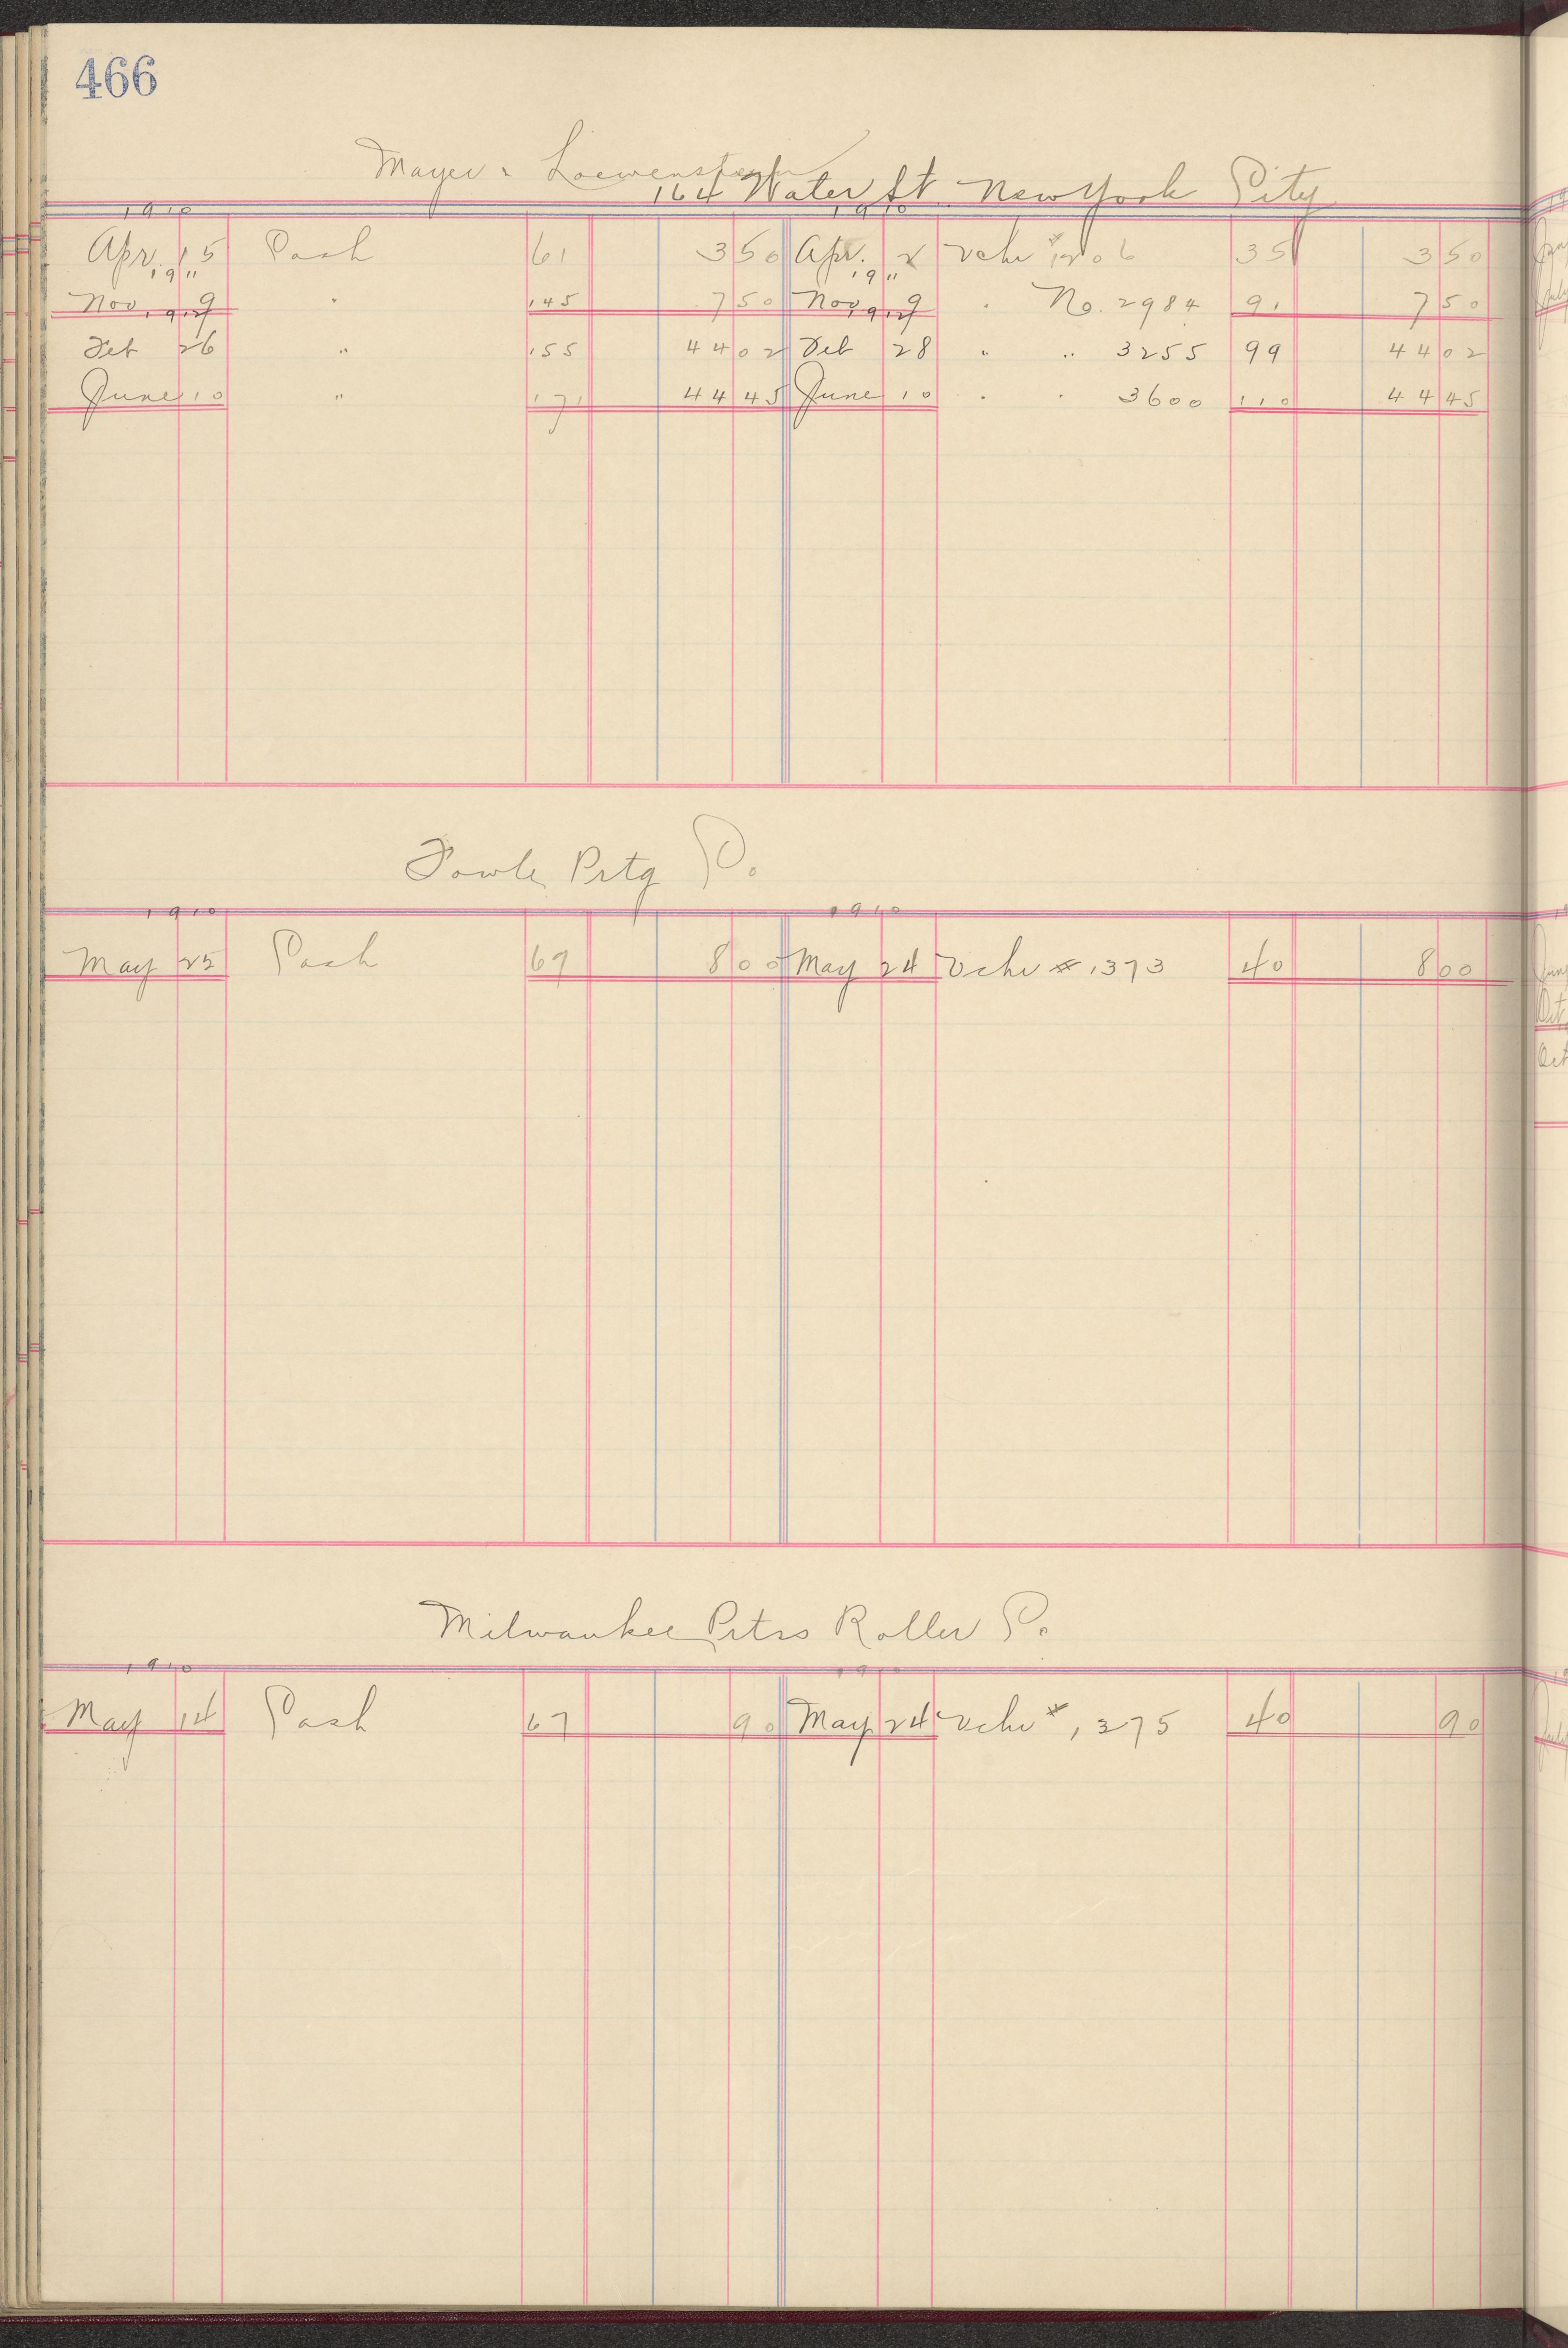 466
Mayer & Loewenstein
164 Water St. New York City
1910 1910
Apr. 15 Cash 61 3 50 Apr. 2 Vchr #1206 35 3 50
1911 1911
Nov. 9 " 145 7 50 Nov. 9 " No. 2984 91 7 50
1912 1912
Feb 26 " 155 44 02 Feb 28 " " 3255 99 44 02
June 10 " 171 44 45 June 10 " " 3600 110 44 45
Fowle Prtg Co.
1910 1910
May 25 Cash 67 8 00 May 24 Vchr # 1373 40 8 00
Milwaukee Prtrs Roller Co.
1910 1910
May 14 Cash 67 90 May 24 Vchr # 1375 40 90